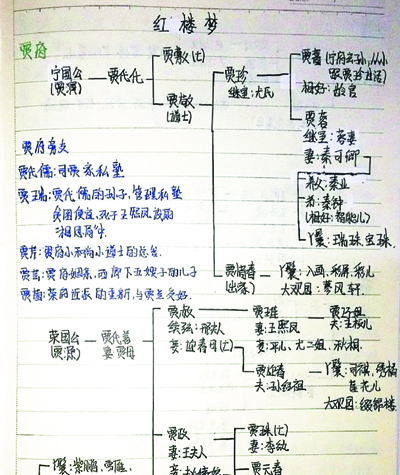 红楼梦
贾府
宁国公 — 贾代化
(贾演)
贾敷(亡)
贾敬
(道士)
贾珍
继室:尤氏
贾蔷(宁府玄孙,从小
跟贾珍生活)
相好:龄官
贾蓉
妻:秦可卿
养父:秦业
弟:秦钟
(相好:智能儿)
丫鬟:瑞珠,宝珠.
贾惜春
(出家)
丫鬟:入画,彩屏,彩儿
大观园:蓼风轩.
贾府旁支
贾代儒:司贾家私塾
贾瑞:贾代儒的孙子,管理私塾
贪图便宜,死于王熙凤设的
相思局
贾芹:贾府小和尚小道士的总管
贾芸:贾府
荣国公 — 贾代善
(贾源) 妻:贾母
贾赦
续弦:邢夫人
妾:迎春母(亡)
贾琏
妻:王熙凤
妾:平儿,尤二姐,秋桐.
贾巧姐
夫:王板儿
贾迎春
夫:孙绍祖
丫鬟:司棋,绣桔
莲花儿
大观园:缀锦楼
贾政
妻:王夫人
贾珠(亡)
妻:李纨
贾元春
丫鬟:紫鹃,雪雁.